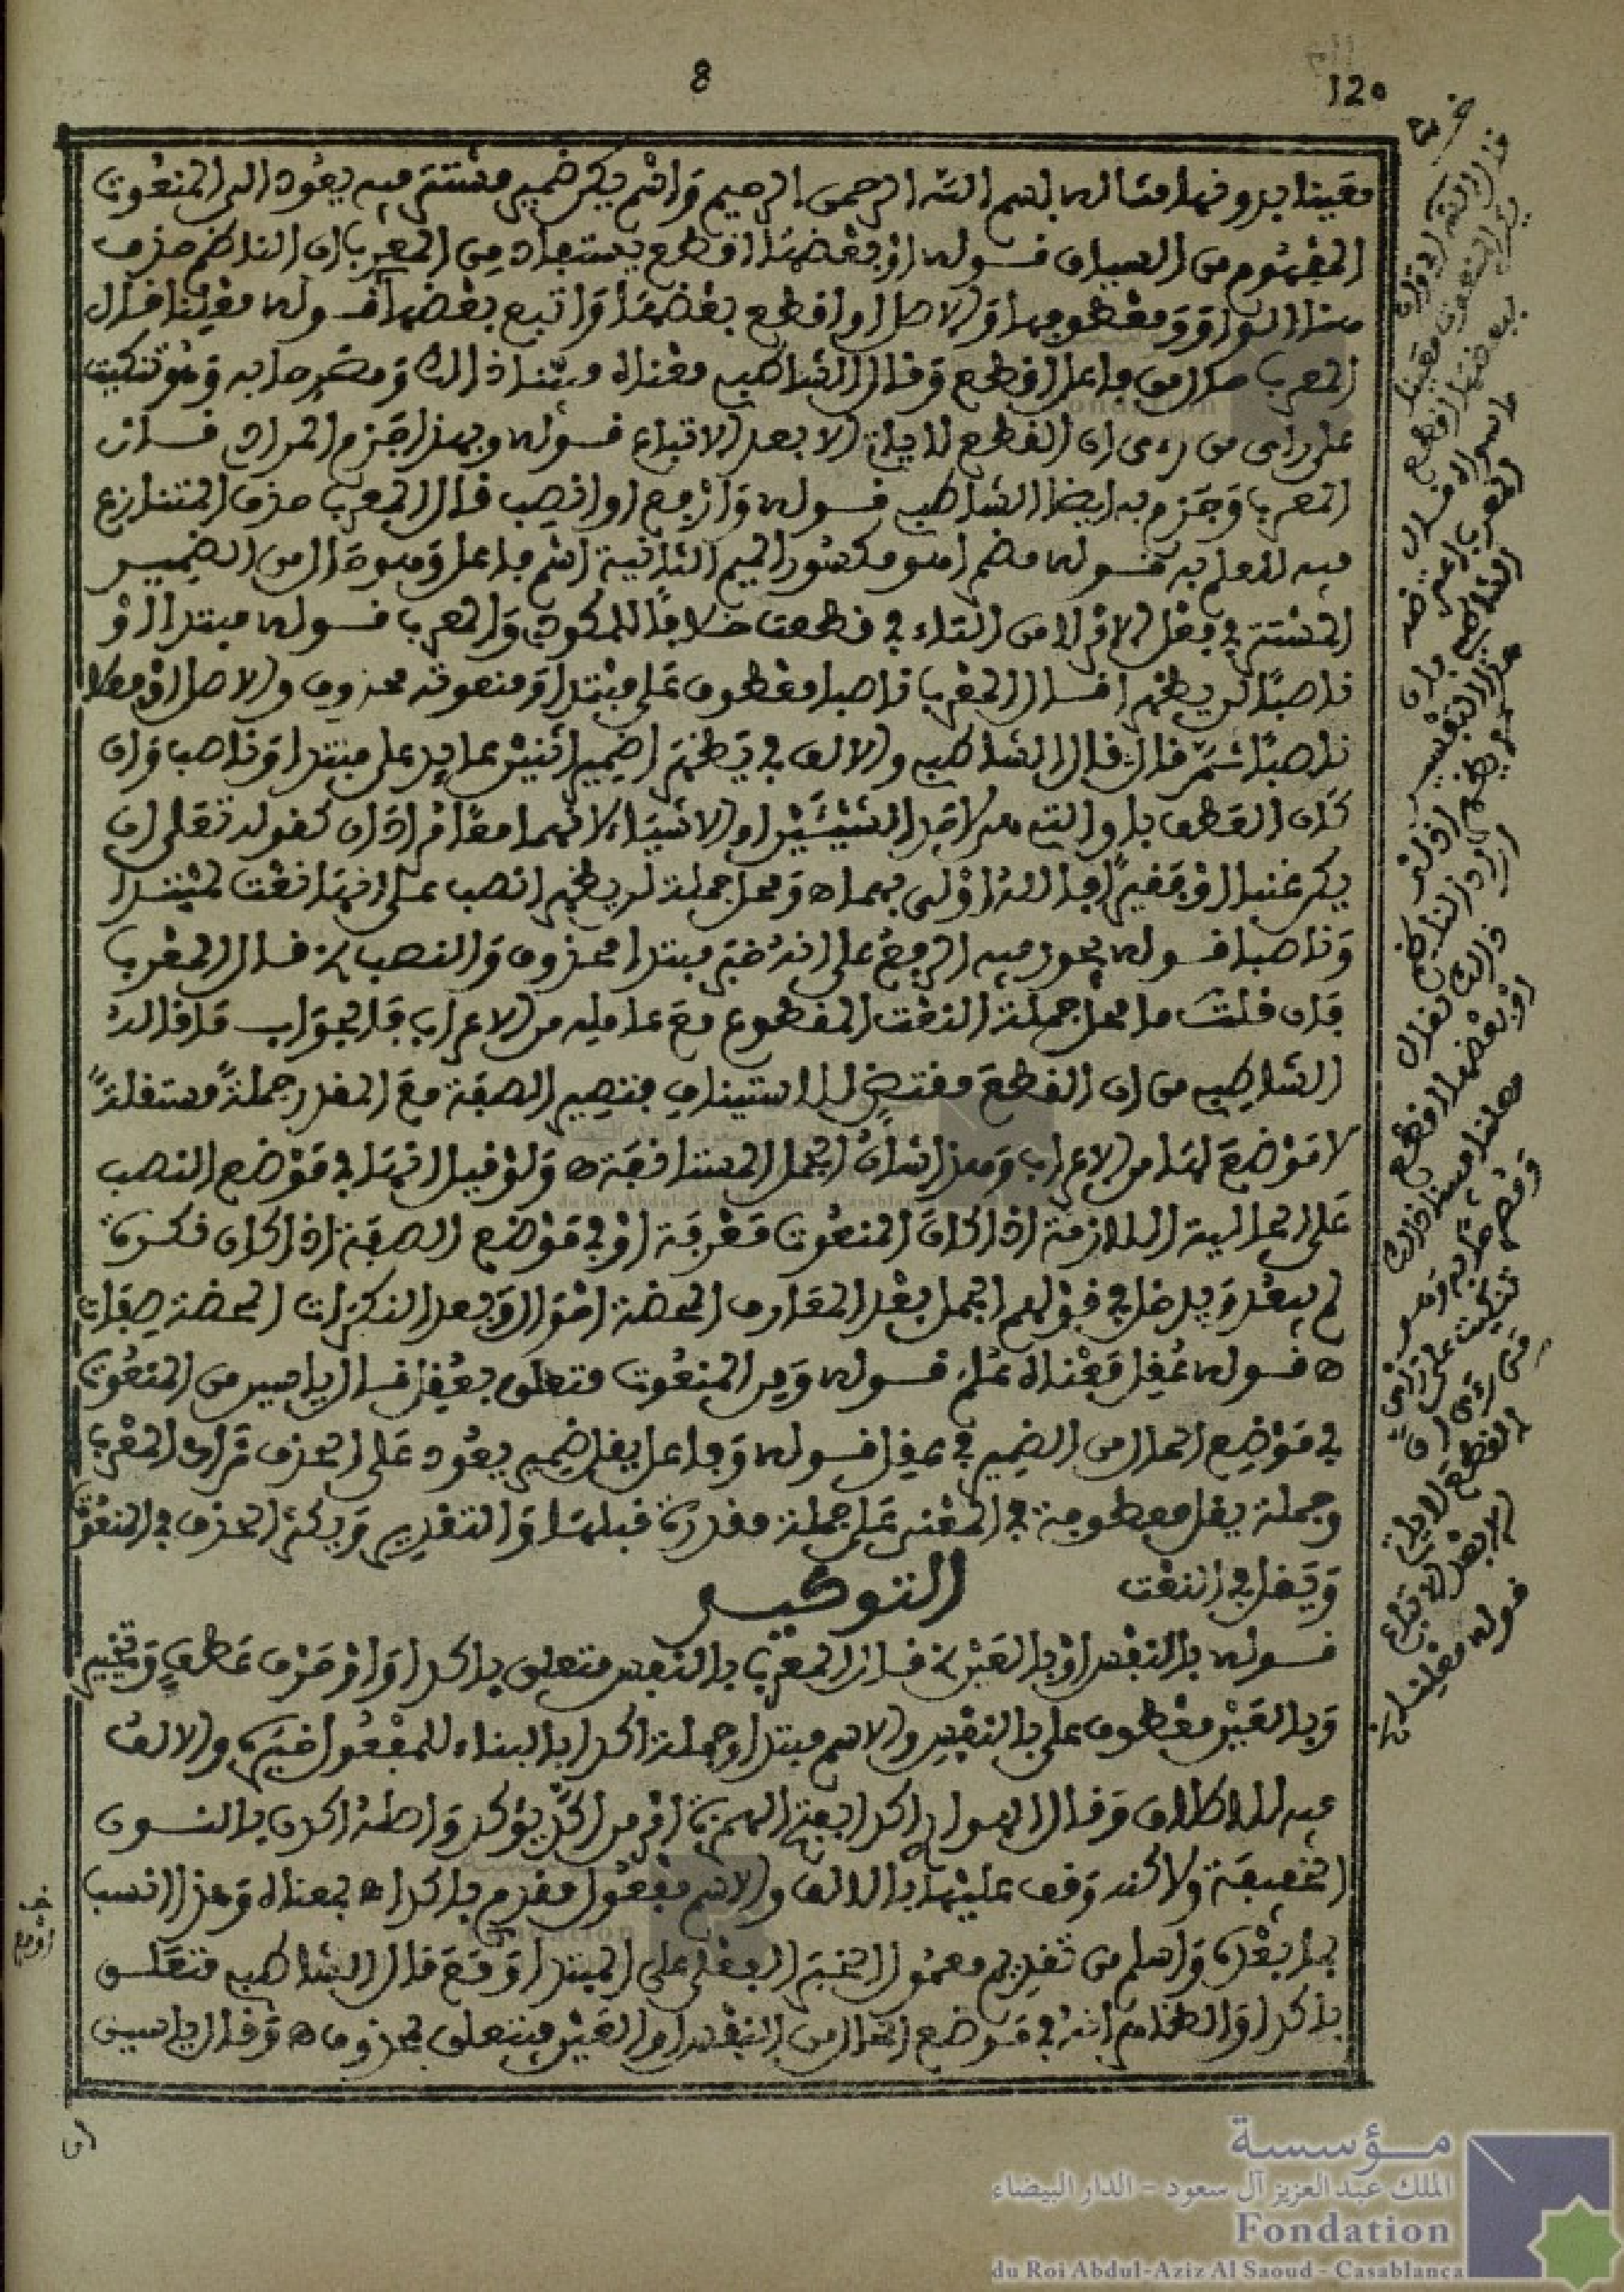 8
120
معينا بدونها مثاله بسم الله الرحمن الرحيم واسم يكن ضمير مستتر فيه يعود الى المنعوت
المفهوم من السياق قوله او بعضها اقطع يستفاد من المعرب ان الناظم حذف
هنا الواو ومعطوفها والاصل او اقطع بعضها واتبع بعضها قوله معلنا قال
المعرب حال من فاعل اقطع وقال الشاطبي معناه مبينا ذالك ومصرحا به وهو تنكيت
على راى من رءى ان القطع لا ياتى الا بعد الاتباع قوله وبهذا جزم المرادى قال
المعرب وجزم به ايضا الشاطبي قوله وارفع او انصب قال المعرب حذف المتنازع
فيه للعلم به قوله مضمرا هو مكسور الميم الثانية اسم فاعل وهو حال من الضمير
المستتر في فعل الامر لا من التاء في قطعت خلافا للمكودي والمعرب قوله مبتدا او
ناصبا لن يظهرا قال المعرب ناصبا معطوف على مبتدا ومنعوته محذوف والاصل او فعلا
ناصبا ثم قال قال الشاطبي والالف في يظهرا ضمير اثنين عايد على مبتدا وناصبا وان
كان العطف باو التي هي لاحد الشيئين او الاشياء لانهما معا مرادان كقوله تعلى ان
يكن غنيا او فقيرا فالله اولى بهما ه ومحل جملة لن يظهرا نصب على انها نعت لمبتدا
وناصبا قوله يجوز فيه الرفع على انه خبر مبتدا محذوف والنصب الخ قال المعرب
فان قلت ما محل جملة النعت المقطوع مع عامله من الاعراب فالجواب ما قاله
الشاطبي من ان القطع مقتض للاستيناف فتصير الصفة مع المقدر جملة مستقلة
لا موضع لها من الاعراب وهذا شان الجمل المستانفة ه ولو قيل انها في موضع النصب
على الحالية اللازمة اذا كان المنعوت معرفة او في موضع الصفة اذا كان نكرة
لم يبعد ويدخل في قولهم الجمل بعد المعارف المحضة احوال وبعد النكرات المحضة صفات
ه قوله عقل معناه علم قوله ومن المنعوت متعلق بعقل قال ياسين من المنعوت
في موضع الحال من الضمير في عقل قوله وفاعل يقل ضمير يعود على الحذف مراد المعرب
وجملة يقل معطوفة في المعنى على جملة مقدرة قبلها والتقدير ويكثر الحذف في المنعوت
ويقل في النعت
التوكيد
قوله بالنفس او بالعين الخ قال المعرب بالنفس متعلق باكدا واو حرف عطف وتخيير
وبالعين معطوف على بالنفس والاسم مبتدا وجملة اكدا بالبناء للمفعول خبره والالف
فيه للاطلاق وقال الهواري اكدا بفتح الهمزة امر من اكد يؤكد واصله اكدن بالنون
الخفيفة ولاكنه وقف عليها بالالف والاسم مفعول مقدم باكدا ه بمعناه وهذا انسب
بما بعده واسلم من تقديم معمول الخبر الفعلي على المبتدا وقع قال الشاطبي متعلق
باكدا والظاهر انه في موضع الحال من النفس او العين فيتعلق بمحذوف ه وقال ياسين
ان
قال
بدون المنعوت معينا
او بعضها اقطع
المعرب
الشاطبي بان
هذا التفسير
لن يظهرا
اراد الناظم
ذالك لقال
او بعضها اقطع
معلنا مبينا ذالك
ومصرحا به وهو
تنكيت على راى
من رءى ان
القطع لا ياتى
الا بعد الاتباع
قوله معلنا الخ
مؤسسة
الملك عبد العزيز آل سعود - الدار البيضاء
Fondation
du Roi Abdul-Aziz Al Saoud - Casablanca